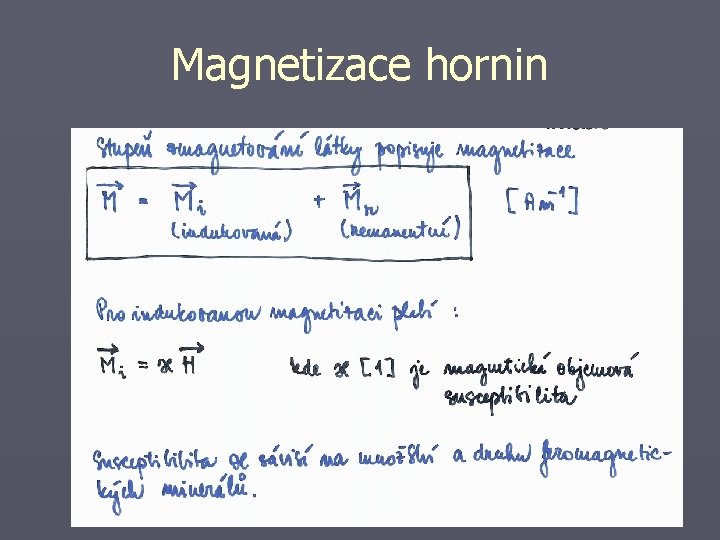 Magnetizace hornin
Stupeň zmagnetování látky popisuje magnetizace
M = Mi + Mr [Am⁻¹]
(indukovaná) (remanentní)
Pro indukovanou magnetizaci platí :
Mi = ϰ H kde ϰ [1] je magnetická objemová
susceptibilita
Susceptibilita ϰ závisí na množství a druhu feromagnetic-
kých minerálů.